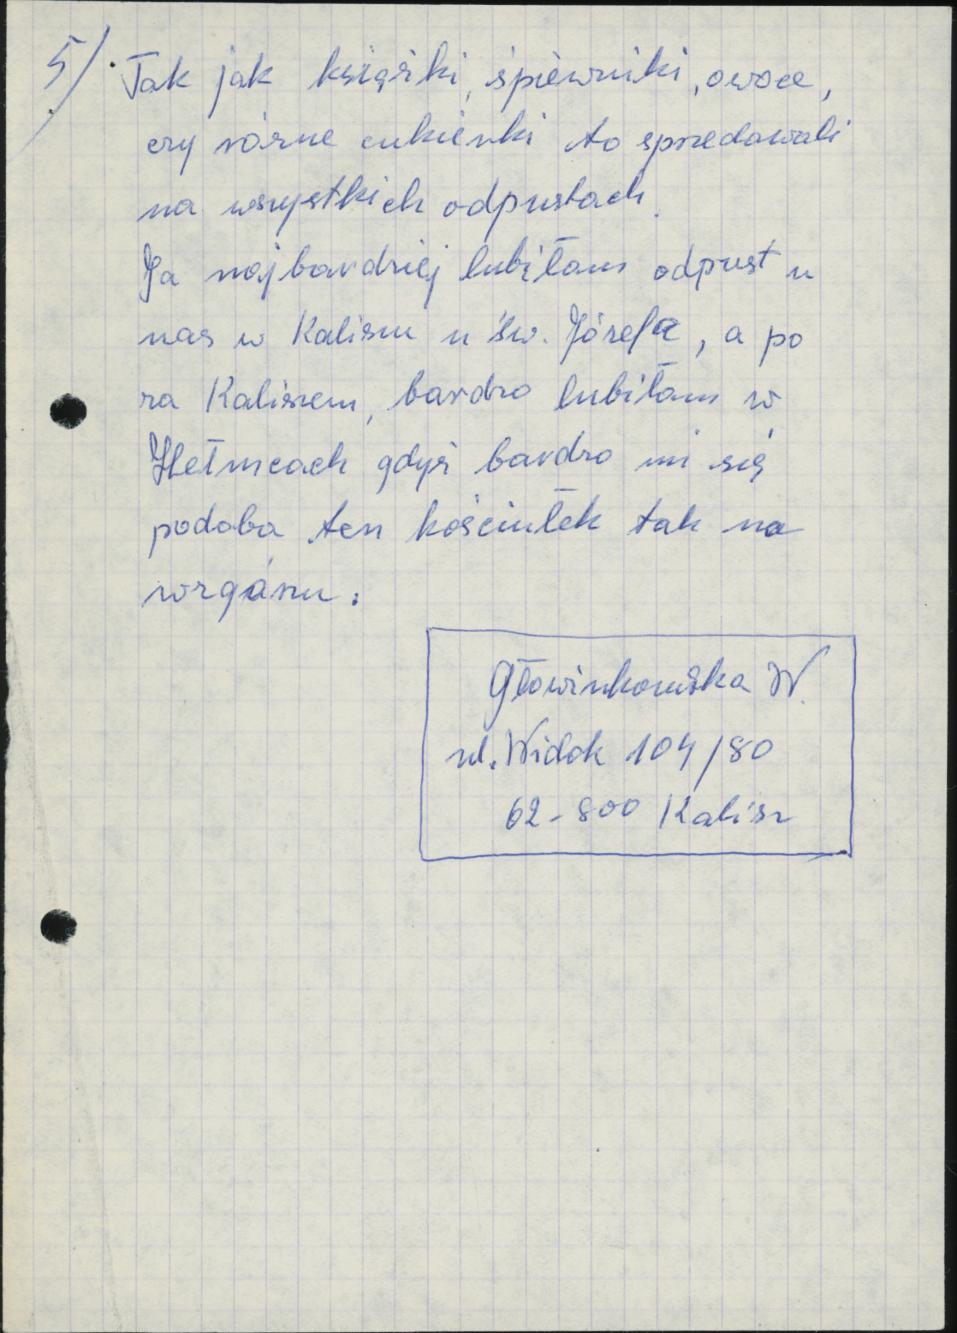 5/ Tak jak książki, śpiewniki, owoce,
czy różne cukierki to sprzedawali
na wszystkich odpustach.
Ja najbardziej lubiłam odpust u
nas w Kaliszu u św. Józefa, a po
za Kaliszem, bardzo lubiłam w
gdyż bardzo mi się
podoba ten kościułek tak na
wzgórzu.
Głowinkowska W.
ul. Widok 104/80
62-800 Kalisz